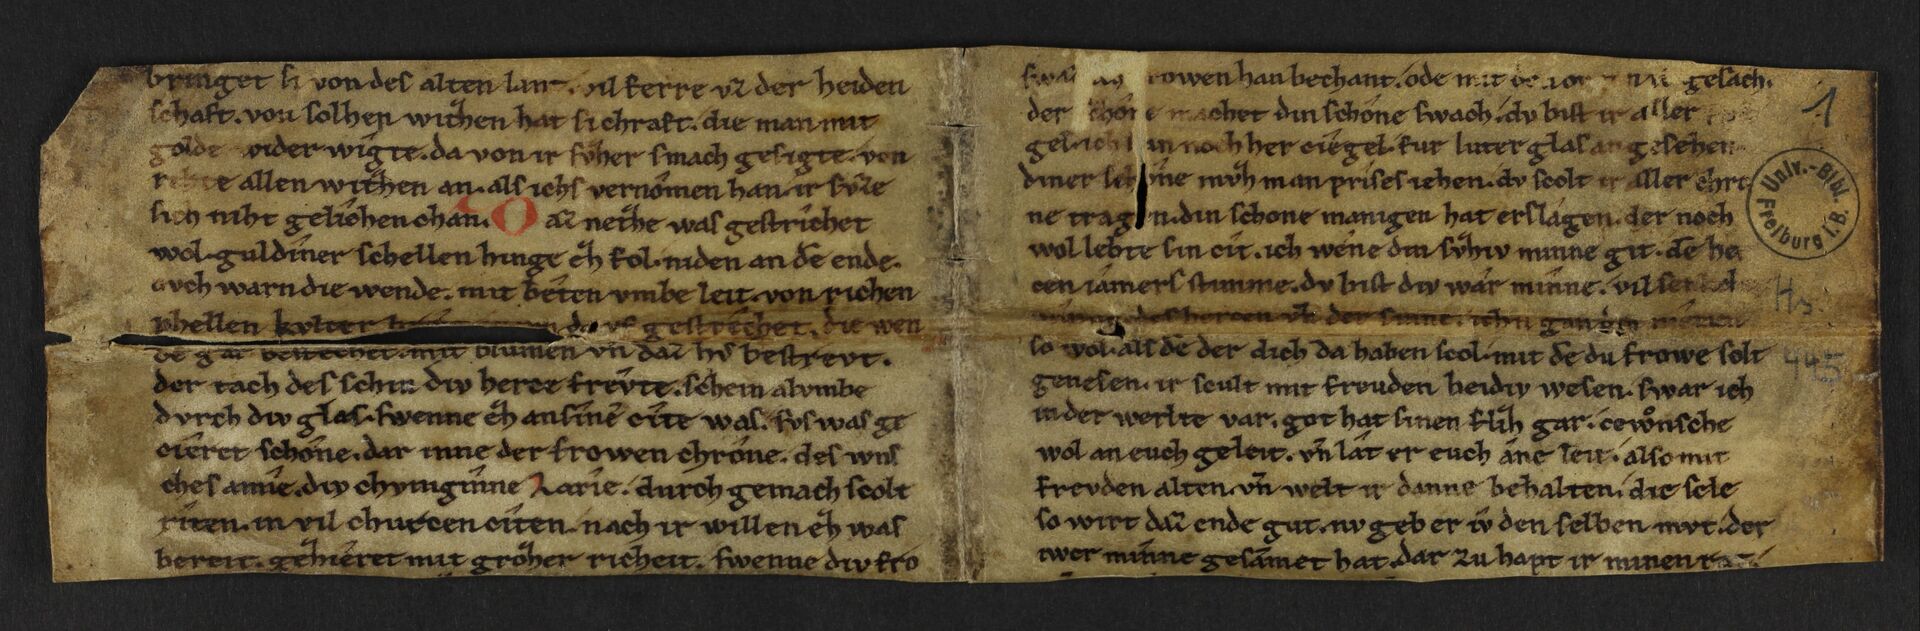 bringet si von des alten lant. vil ferre vz der heiden
schaft. von solhen withen hat si chraft. die man mit
golde wider wigte. da von ir svzher smach gesigte. von
rehte allen withen an. als ichs vernomen han. ir svze
sich niht gelichen chan. Daz nethe was gestrichet
wol. guldiner schellen hinge ezh fol. niden an dem ende.
ouch warn die wende. mit beiten vmbe leit. von richen
phellen kvlter dar vf gestrechet. die wen
de gar bestechet. mit blumen vñ daz hv bestrevt.
der tach des schin div herce frevte. schein alvmbe
dvrch div glas. swenne ezh an sine cite was. svs was ge
cieret schone. dar inne der frowen chrone. des wns
ches amie. div chvniginne Larie. durch gemach scolt
riten. in vil churcen citen. nach ir willen ezh was
bereit. gehieret mit grozher richeit. swenne div fro
rowen han bechant. ode mit gesach.
der schone machet din schone swach. dv bist ir aller
gelich han noch her ciegel. fur luter glas an gesehen
diner schone mvzh man prises iehen. dv scolt ir aller chro
ne tragen. din schone manigen hat erslagen. der noch
wol lebte sin cit. ich wene din svzhiv minne git. dem her
cen iamers stimme. dv bist div war minne.
des hercen vñ der sinne.
so wol. als dem der dich da haben scol. mit dem du frowe solt
genesen. ir scult mit freuden beidiv wesen. swar ich
in der werlte var. got hat sinen flizh gar. cewonsche
wol an euch geleit. vñ lat er euch ane leit. also mit
frevden alten. vñ welt ir danne behalten. die sele
so wirt daz ende gut. nv geb er iv den selben mvt. der
iwer minne gesamet hat. dar zu hapt ir minen rat
1
Univ.-Bibl. Freiburg i. B.
Hs.
445